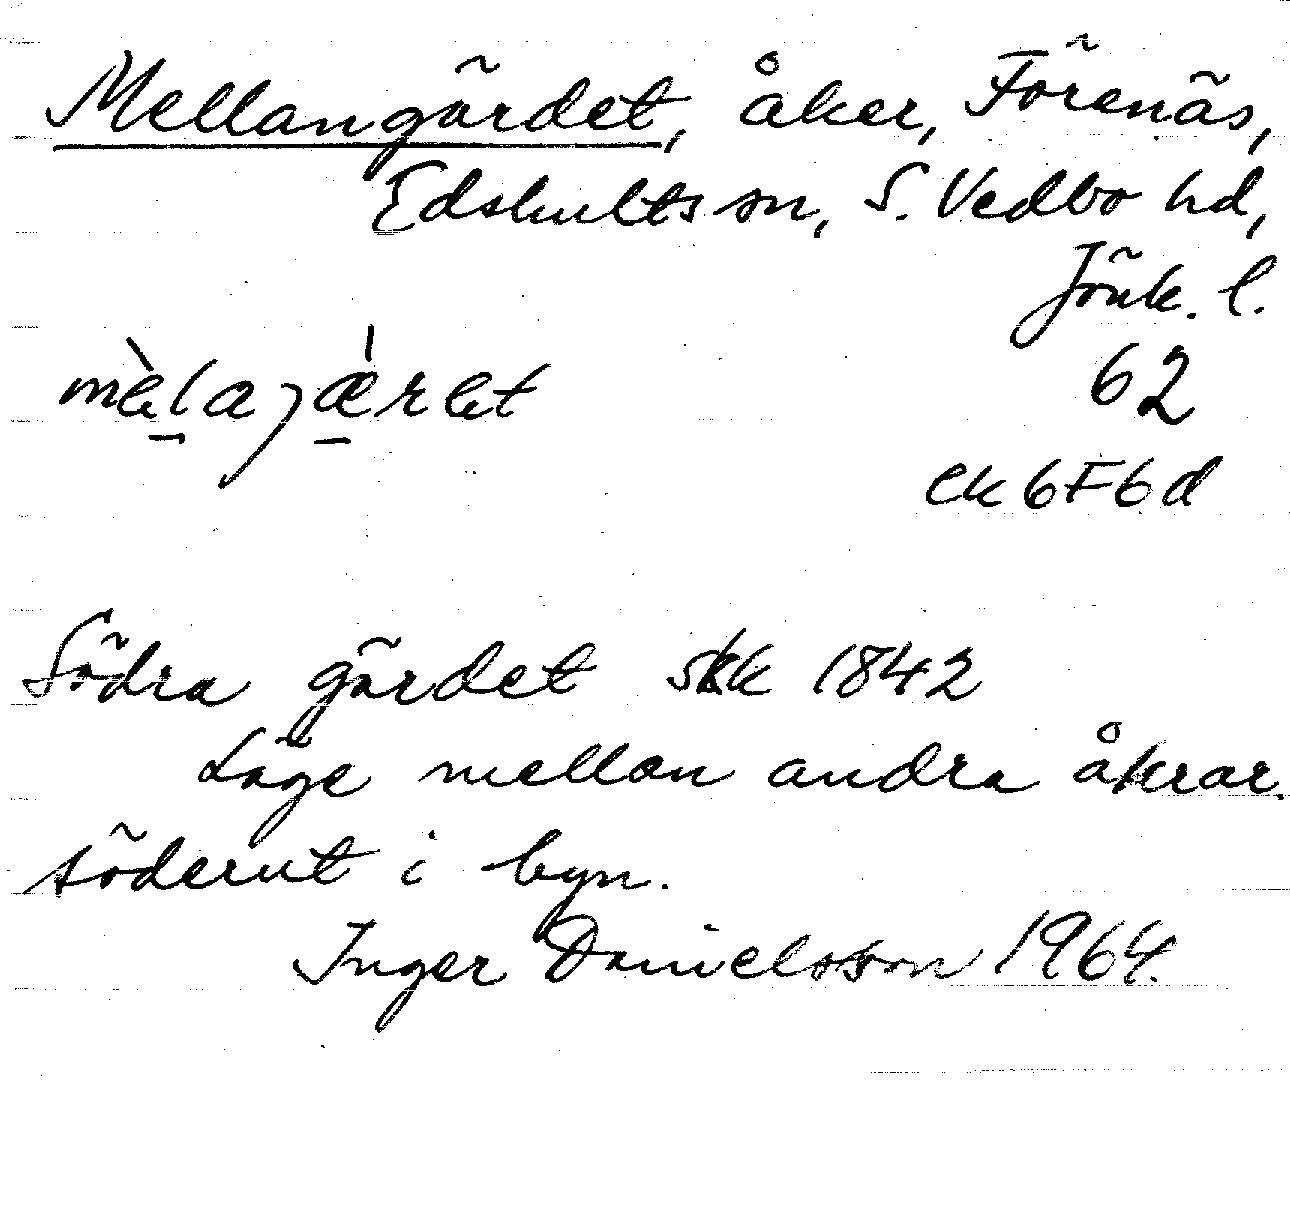 Mellangärdet, åker, Förenäs,
Edshults sn, S. Vedbo hd,
Jönk. l.
62
mèlajæ̀ret
ek 6F6d
Södra gärdet skk 1842
Läge mellan andra åkrar.
söderut i byn.
Inger Danielsson 1964.